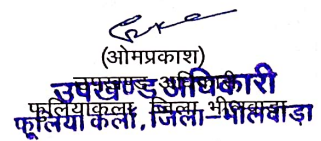 (ओमप्रकाश)
उपखण्ड अधिकारी
फूलियाकलां, जिला भीलवाड़ा
उपखण्ड अधिकारी
फूलिया कलाँ, जिला-भीलवाड़ा